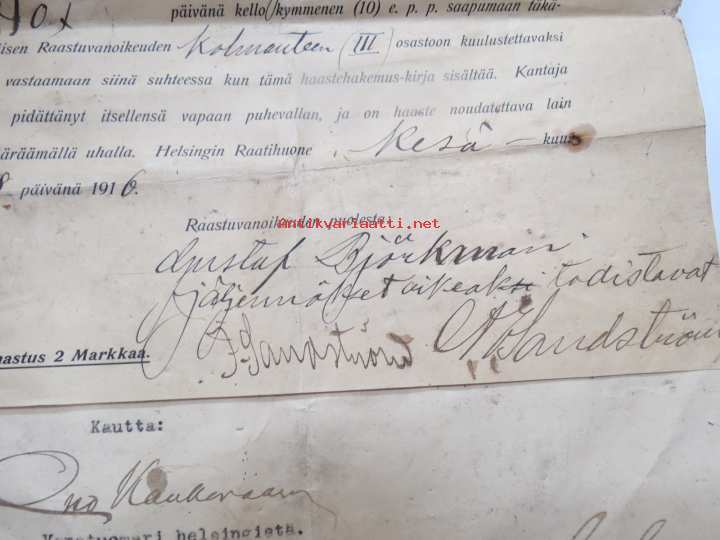 päivänä kello kymmenen (10) e. p. p. saapumaan täkä-
isen Raastuvanoikeuden Kolmanteen (III) osastoon kuulustettavaksi
vastaamaan siinä suhteessa kun tämä haastehakemus-kirja sisältää. Kantaja
pidättänyt itsellensä vapaan puhevallan, ja on haaste noudatettava lain
äräämällä uhalla. Helsingin Raatihuone Kesä - kuun
päivänä 1916.
Raastuvanoikeuden puolesta:
antikvariaatti.net
Gustaf Björkman.
Jäljennökset oikeaksi todistavat
nastus 2 Markkaa.
Sandström Sandström
Kautta:
helsingistä.